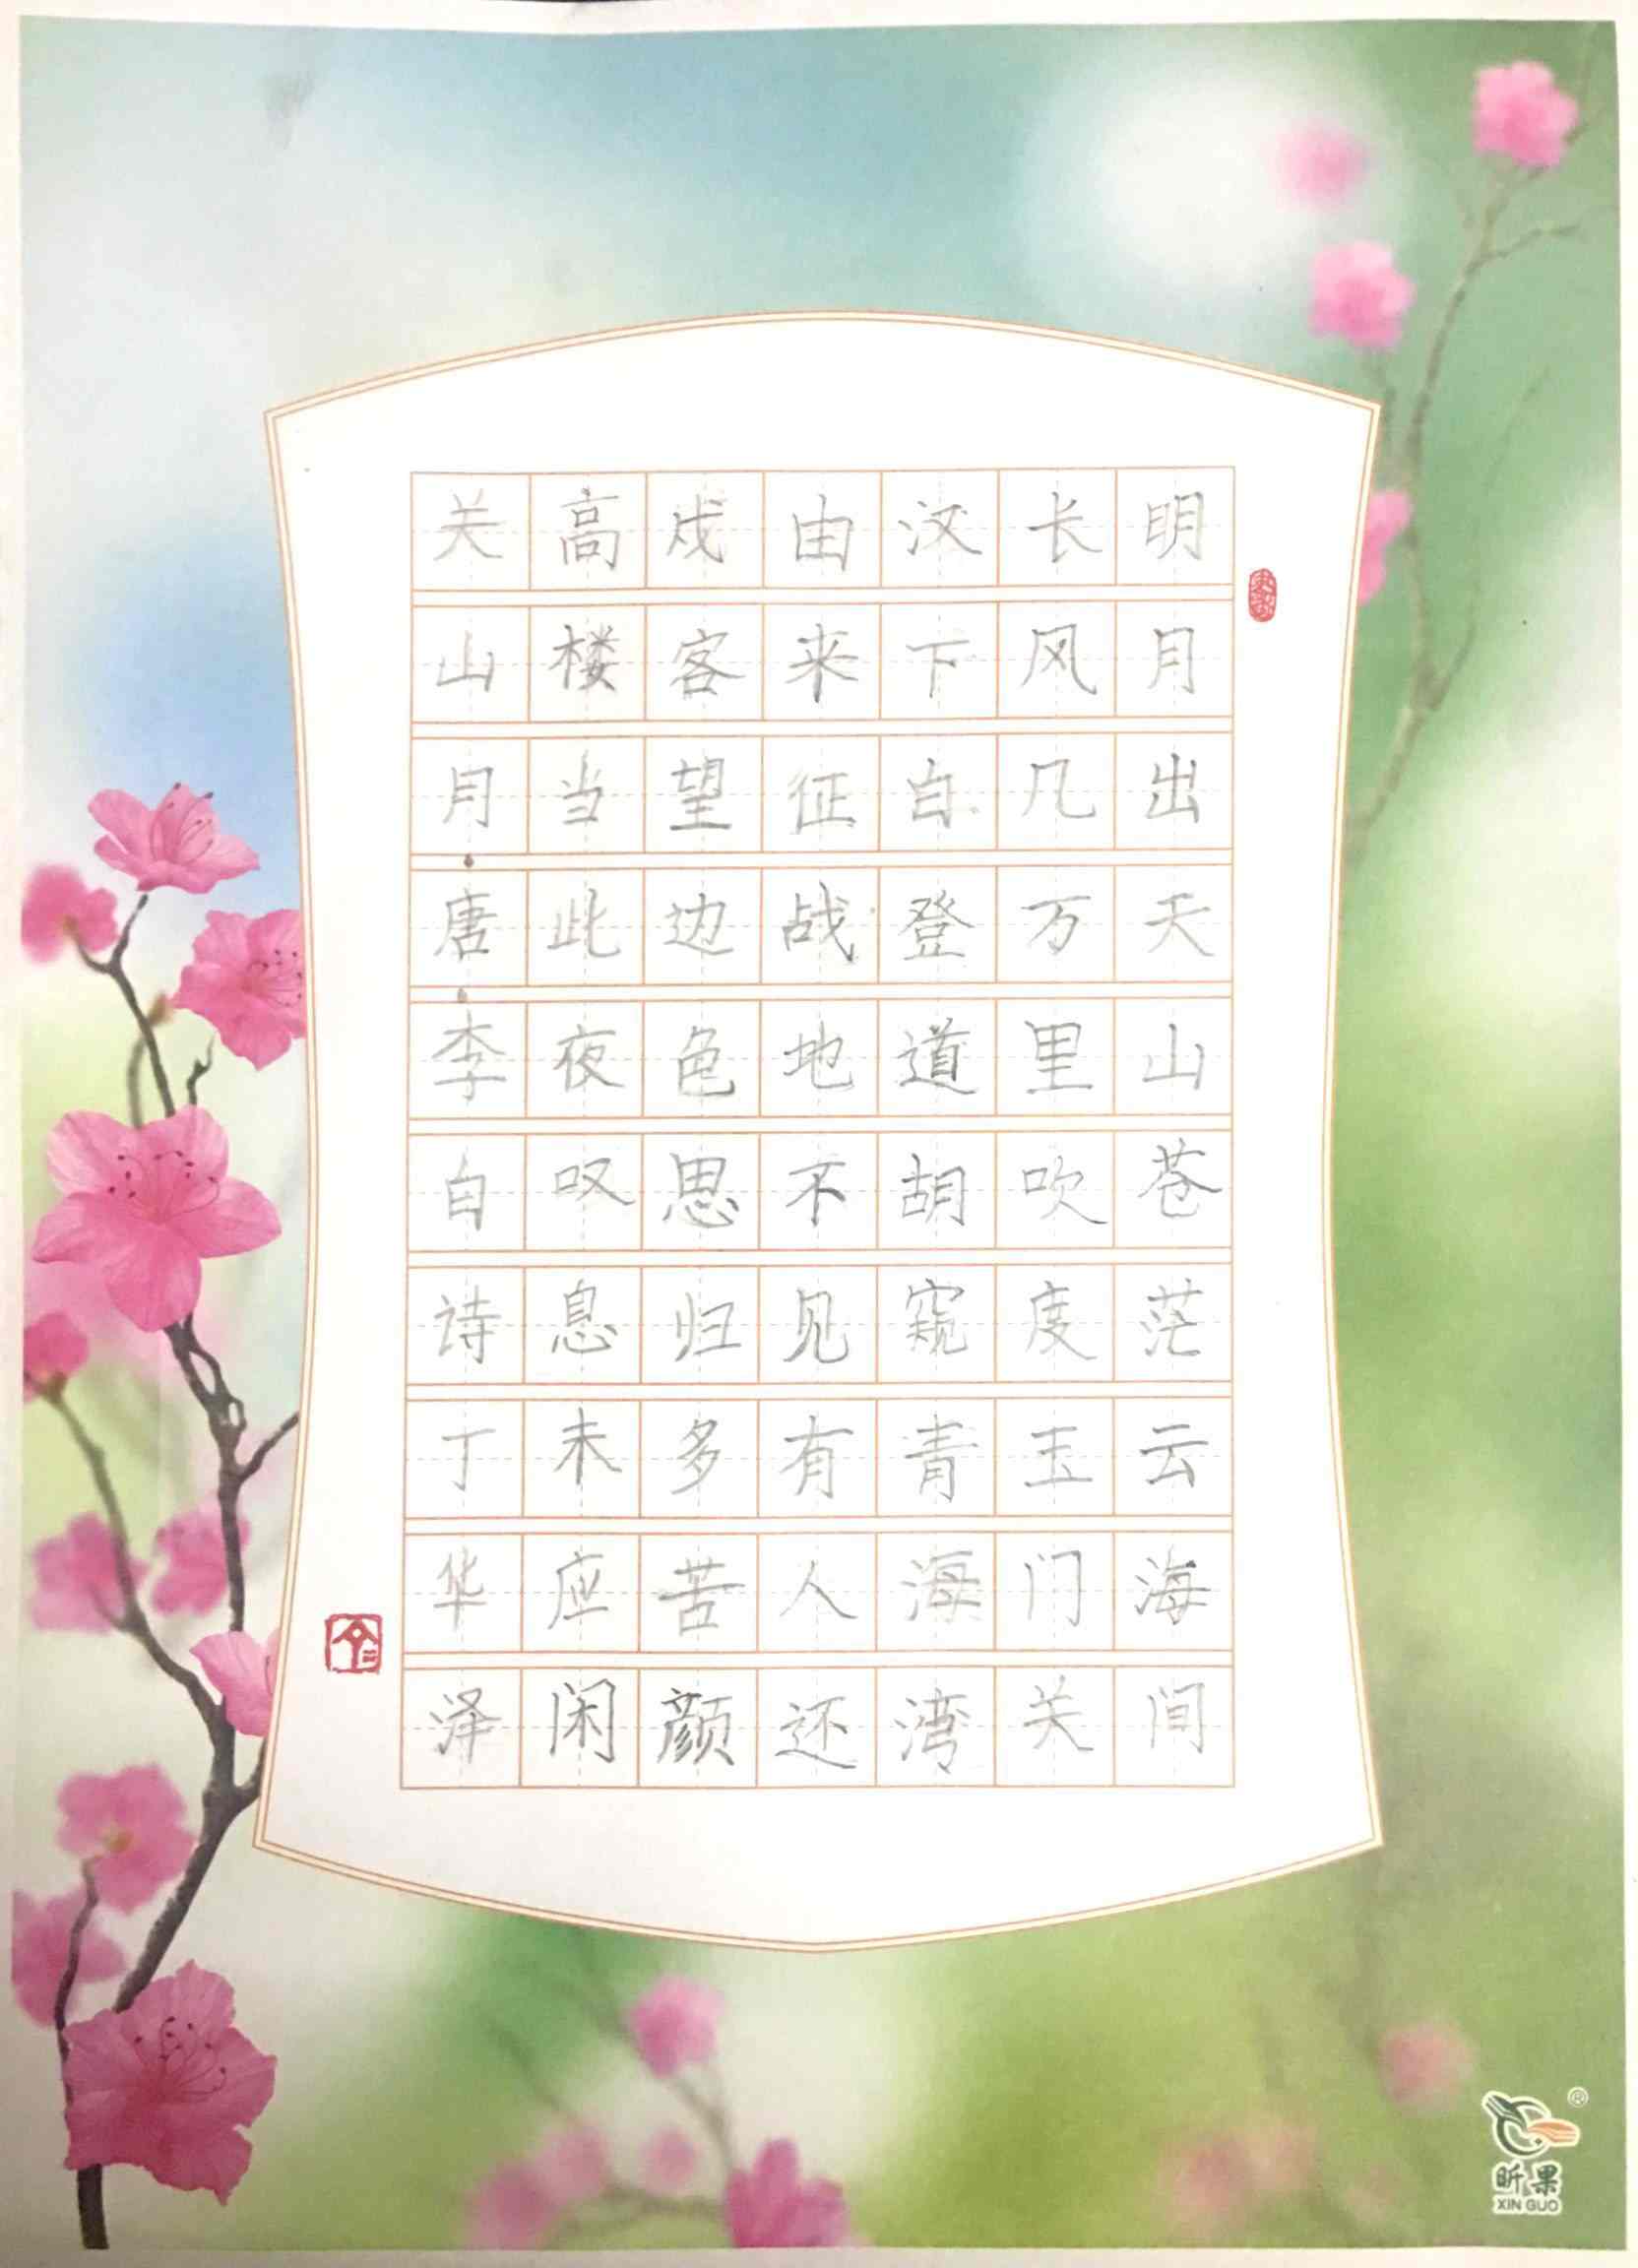 明月出天山苍茫云海间
长风几万里吹度玉门关
汉下白登道胡窥青海湾
由来征战地不见有人还
戍客望边色思归多苦颜
高楼当此夜叹息未应闲
关山月·唐·李白诗丁华泽
昕果®
XIN GUO